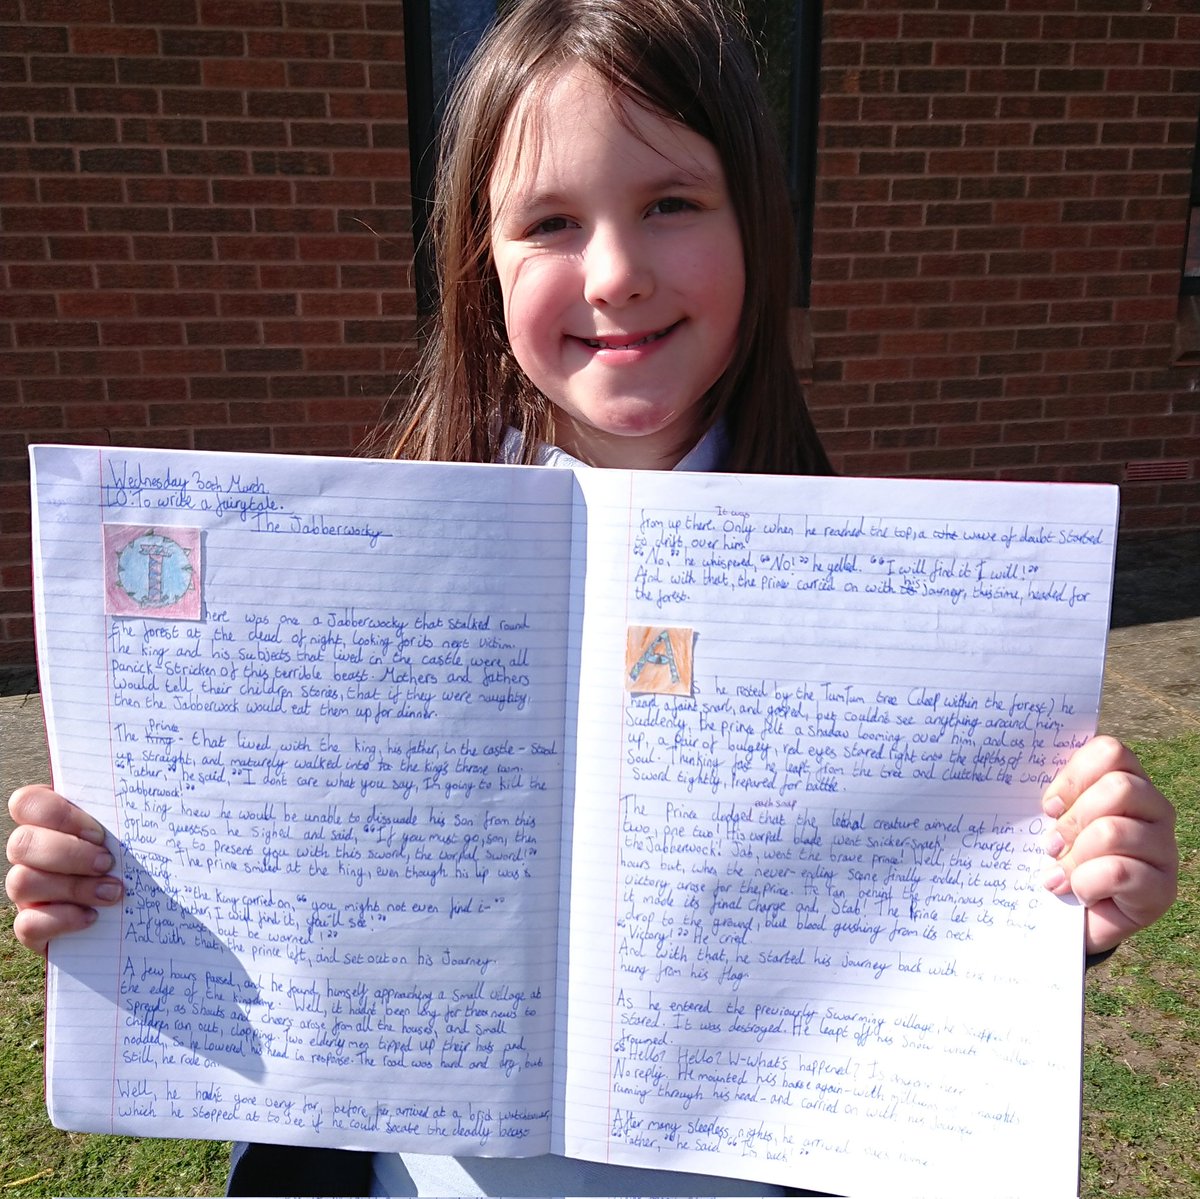 Wednesday 30th March
LO: To write a fairytale.
The Jabberwocky
T
here was one a Jabberwocky that stalked round
the forest at the dead of night, looking for its next victim.
The king and his subjects that lived in the castle were all
panick-stricken of this terrible beast. Mothers and fathers
would tell their children stories, that if they were naughty,
then the Jabberwock would eat them up for dinner.
Prince
The King - that lived with the king, his father, in the castle - stood
up straight, and maturely walked into to the king's throne room.
"Father," he said, "I don't care what you say, I'm going to kill the
Jabberwock!"
The king knew he would be unable to dissuade his son from this
forlon quest, so he sighed and said, "If you must go, son, then
allow me to present you with this sword, the vorpal sword!"
The prince smiled at the king, even though his lip was
"Anyway," the king carried on, "you might not even find i-"
"Stop it father, I will find it, you'll see!"
"If you must, but be warned!"
And with that, the prince left, and set out on his Journey.
A few hours passed, and he found himself approaching a small village at
the edge of the kingdome. Well, it hadn't been long for the news to
spread, as shouts and cheers arose from all the houses, and small
children ran out, clapping. Two elderly men tipped up their hats and
nodded, so he lowered his head in response. The road was hard and dry, but
still, he rode on.
Well, he hadn't gone very far, before he arrived at a bird watchtower,
which he stopped at to see if he could locate the deadly beast
It was
from up there. Only when he reached the top, a wave of doubt started
to drift over him.
"No," he whispered, "No!" he yelled. "I will find it I will!"
And with that, the prince carried on with his journey, this time, headed for
the forest.
A
s he rested by the TumTum tree (deep within the forest) he
heard a faint snarl, and gasped, but couldn't see anything around him.
Suddenly, the prince felt a shadow looming over him, and as he looked
up, a pair of bulgey, red eyes stared right into the depths of his
soul. Thinking fast he leapt from the tree and clutched the vorpal
sword tightly, prepared for battle.
each snap
The prince dodged that the lethal creature aimed at him. One
two, one two! His vorpal blade went snicker-snack! Charge, went
the Jabberwock! Jab, went the brave prince! Well, this went on
hours but, when the never-ending scene finally ended, it was
victory arose for the prince. He ran behind the beast
it made its final charge and, Stab! The prince let its
drop to the ground, blue blood gushing from its neck.
"Victory!" He cried.
And with that, he started his journey back with
hung from his flag.
As he entered the previously swarming village, he
stared. It was destroyed. He leapt off his snow white
frowned.
"Hello? Hello? W-what's happened? Is
No reply. He mounted his horse again - with millions of thoughts
running through his head - and carried on with his journey.
After many sleepless nights, he arrived
"Father," he said "I'm back!"